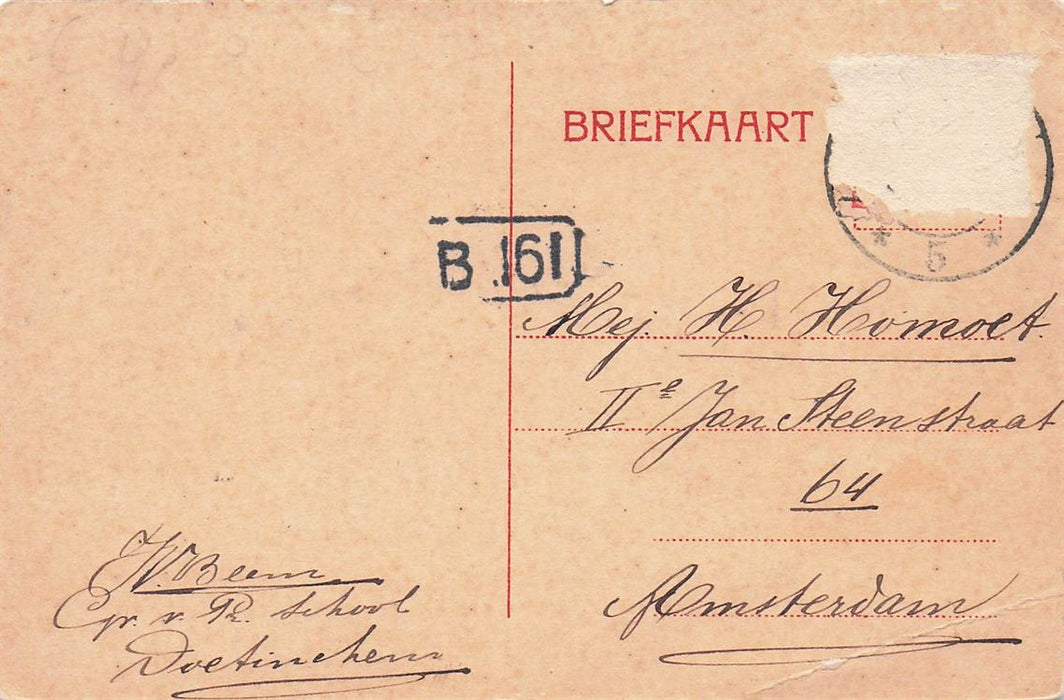 BRIEFKAART
5
B 161
Mej. H. Homoet.
IIe Jan Steenstraat
64
Amsterdam
W. Beem
v. school
Doetinchem